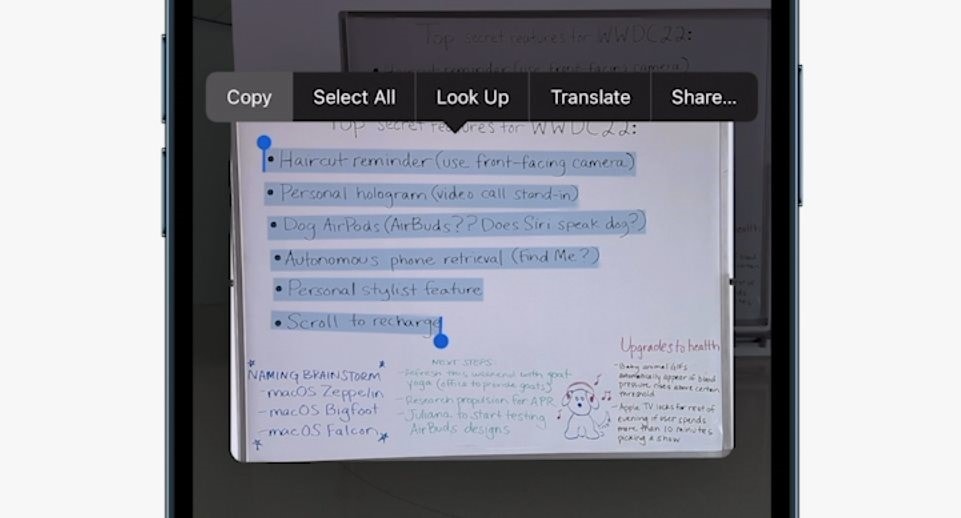 Top secret features for WWDC22:
Copy
Select All
Look Up
Translate
Share...
Top secret features for WWDC22:
• Haircut reminder (use front-facing camera)
• Personal hologram (video call stand-in)
• Dog AirPods (AirBuds?? Does Siri speak dog?)
• Autonomous phone retrieval (Find Me?)
• Personal stylist feature
• Scroll to recharge
NAMING BRAINSTORM
- macOS Zeppelin
- macOS Bigfoot
- macOS Falcon
NEXT STEPS:
- Refresh this weekend with goat
yoga (office to provide goats)
- Research propulsion for APR
- Juliana to start testing
AirBuds designs
Upgrades to health
- Baby animal GIFs
automatically appear if blood
pressure rises above certain
threshold
- Apple TV locks for rest of
evening if user spends
more than 10 minutes
picking a show